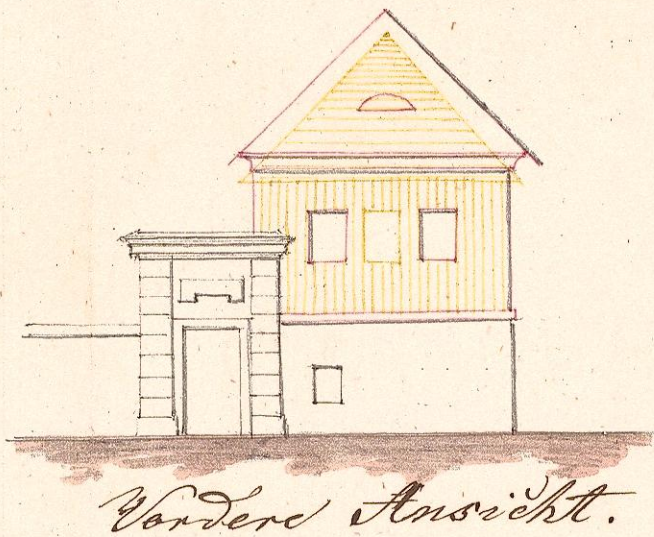 Vordere Ansicht.